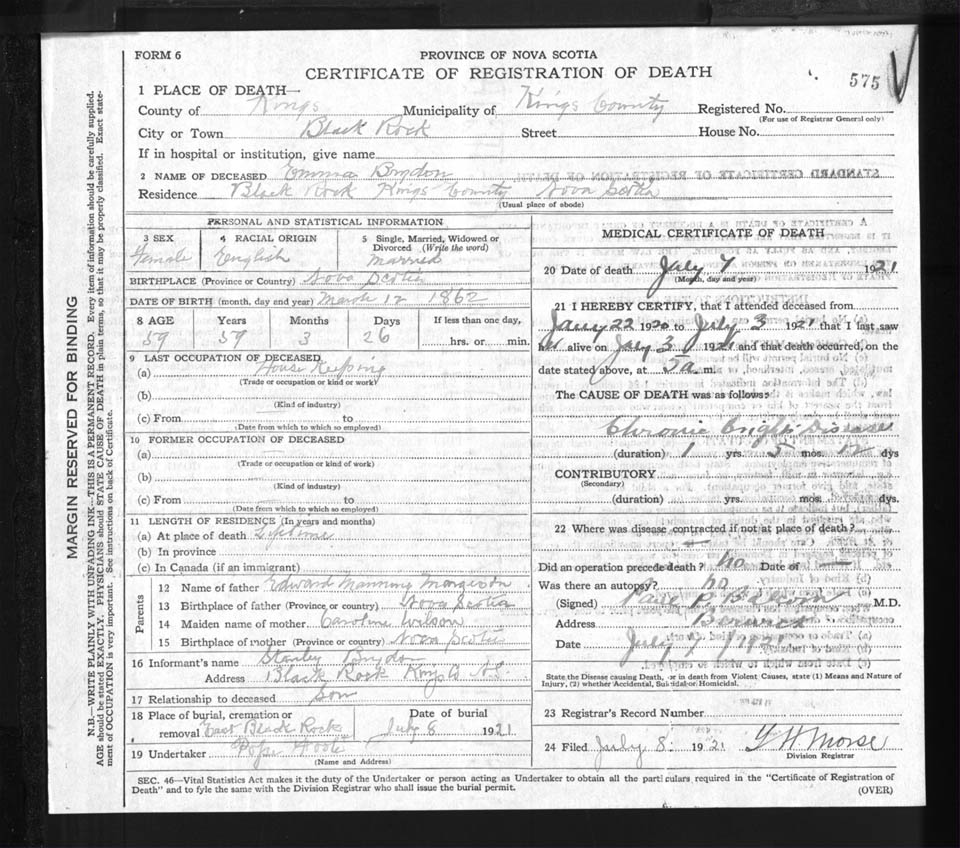 FORM 6
PROVINCE OF NOVA SCOTIA
CERTIFICATE OF REGISTRATION OF DEATH
575
1 PLACE OF DEATH—
County of Kings Municipality of Kings County Registered No.
(For use of Registrar General only)
City or Town Black Rock Street House No.
If in hospital or institution, give name
2 NAME OF DECEASED Emma Brydon
Residence Black Rock Kings County Nova Scotia
(Usual place of abode)
PERSONAL AND STATISTICAL INFORMATION
3 SEX 4 RACIAL ORIGIN 5 Single, Married, Widowed or Divorced (Write the word)
Female English Married
BIRTHPLACE (Province or Country) Nova Scotia
DATE OF BIRTH (month, day and year) March 12 1862
8 AGE Years Months Days If less than one day,
59 59 3 26 hrs. or min.
9 LAST OCCUPATION OF DECEASED
(a) House Keeping
(Trade or occupation or kind or work)
(b)
(Kind of industry)
(c) From to
(Date from which to which so employed)
10 FORMER OCCUPATION OF DECEASED
(a)
(Trade or occupation or kind of work)
(b)
(Kind of industry)
(c) From to
(Date from which to which so employed)
11 LENGTH OF RESIDENCE (In years and months)
(a) At place of death Lifetime
(b) In province
(c) In Canada (if an immigrant)
Parents
12 Name of father Edward Manning Margeson
13 Birthplace of father (Province or country) Nova Scotia
14 Maiden name of mother Caroline Wilson
15 Birthplace of mother (Province or country) Nova Scotia
16 Informant's name Stanley Brydon
Address Black Rock Kings Co N.S.
17 Relationship to deceased Son
18 Place of burial, cremation or removal East Black Rock Date of burial July 8 1921
19 Undertaker
(Name and Address)
MEDICAL CERTIFICATE OF DEATH
20 Date of death July 7 1921
(Month, day and year)
21 I HEREBY CERTIFY, that I attended deceased from
Jany 22 1920 to July 3 1921 that I last saw
alive on July 3 1921 and that death occurred, on the
date stated above, at 5 a m.
The CAUSE OF DEATH was as follows:
Chronic Brights Disease
(duration) 1 yrs. 5 mos. 12 dys
CONTRIBUTORY
(Secondary)
(duration) yrs. mos. dys.
22 Where was disease contracted if not at place of death?
Did an operation precede death? no Date of
Was there an autopsy? no
(Signed) M.D.
Address Berwick
Date July 7/1921
State the Disease causing Death, or in death from Violent Causes, state (1) Means and Nature of
Injury, (2) whether Accidental, Suicidal or Homicidal.
23 Registrar's Record Number
24 Filed July 8 1921 Morse
Division Registrar
SEC. 46—Vital Statistics Act makes it the duty of the Undertaker or person acting as Undertaker to obtain all the particulars required in the "Certificate of Registration of
Death" and to fyle the same with the Division Registrar who shall issue the burial permit.
(OVER)
MARGIN RESERVED FOR BINDING
N.B.—WRITE PLAINLY WITH UNFADING INK—THIS IS A PERMANENT RECORD. Every item of information should be carefully supplied.
AGE should be stated EXACTLY. PHYSICIANS should STATE CAUSE OF DEATH in plain terms, so that it may be properly classified. Exact state-
ment of OCCUPATION is very important. See instructions on back of Certificate.